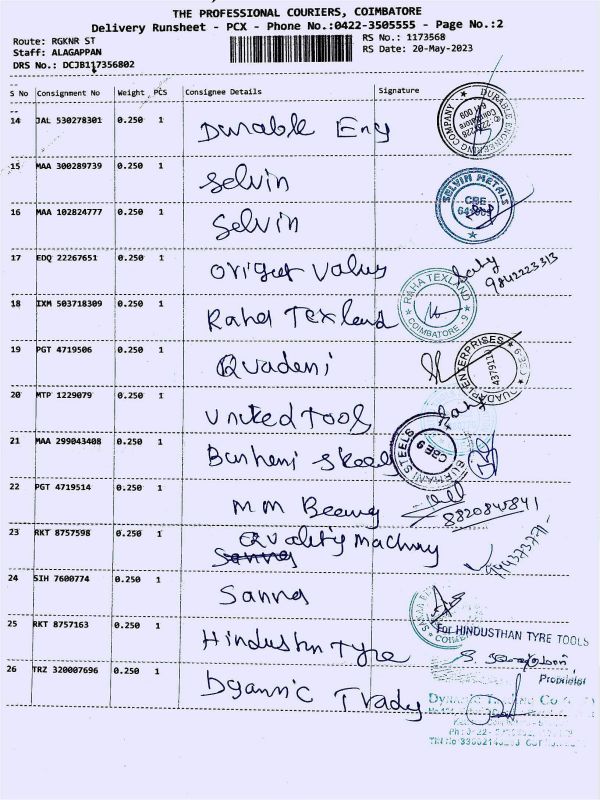 THE PROFESSIONAL COURIERS, COIMBATORE
Delivery Runsheet - PCX - Phone No.:0422-3505555 - Page No.:2
Route: RGKNR ST
RS No.: 1173568
Staff: ALAGAPPAN
RS Date: 20-May-2023
DRS No.: DCJB117356802
S No Consignment No Weight PCS Consignee Details Signature
14 JAL 530278301 0.250 1 Durable Eng
DURABLE ENGINEERING COMPANY
15 MAA 300289739 0.250 1 Selvin
SELVIN METALS
CBE
16 MAA 102824777 0.250 1 Selvin
17 EDQ 22267651 0.250 1 Origut Values
9842223313
18 IXM 503718309 0.250 1 Raha Texland
RAHA TEXLAND
COIMBATORE - 9
19 PGT 4719506 0.250 1 Quadeni
20 MTP 1229079 0.250 1 United Tools
21 MAA 299043408 0.250 1 Burhani Steels
BURHANI STEELS
CBE 9
22 PGT 4719514 0.250 1 MM Bearing
8820845841
23 RKT 8757598 0.250 1 Quality Machury
24 SIH 7600774 0.250 1 Sanna
25 RKT 8757163 0.250 1 Hindusthn Tyre
For HINDUSTHAN TYRE TOOLS
Proprietor
26 TRZ 320007696 0.250 1 Dyannc Trady